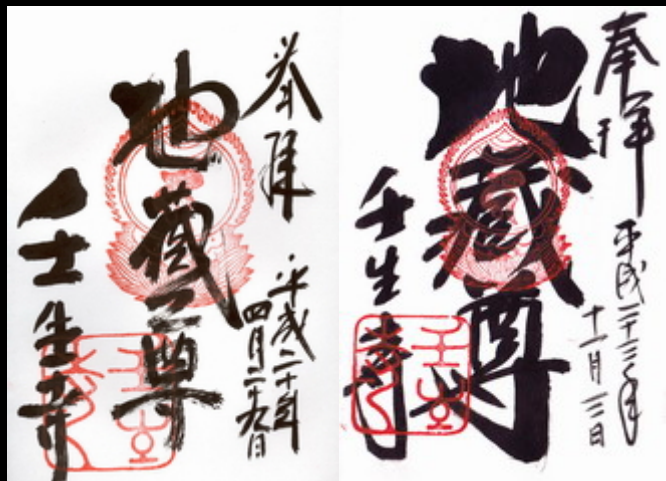 奉拝
平成二十年
四月二十九日
地蔵尊
壬生寺
奉拝
平成二十三年
十一月三日
地蔵尊
壬生寺